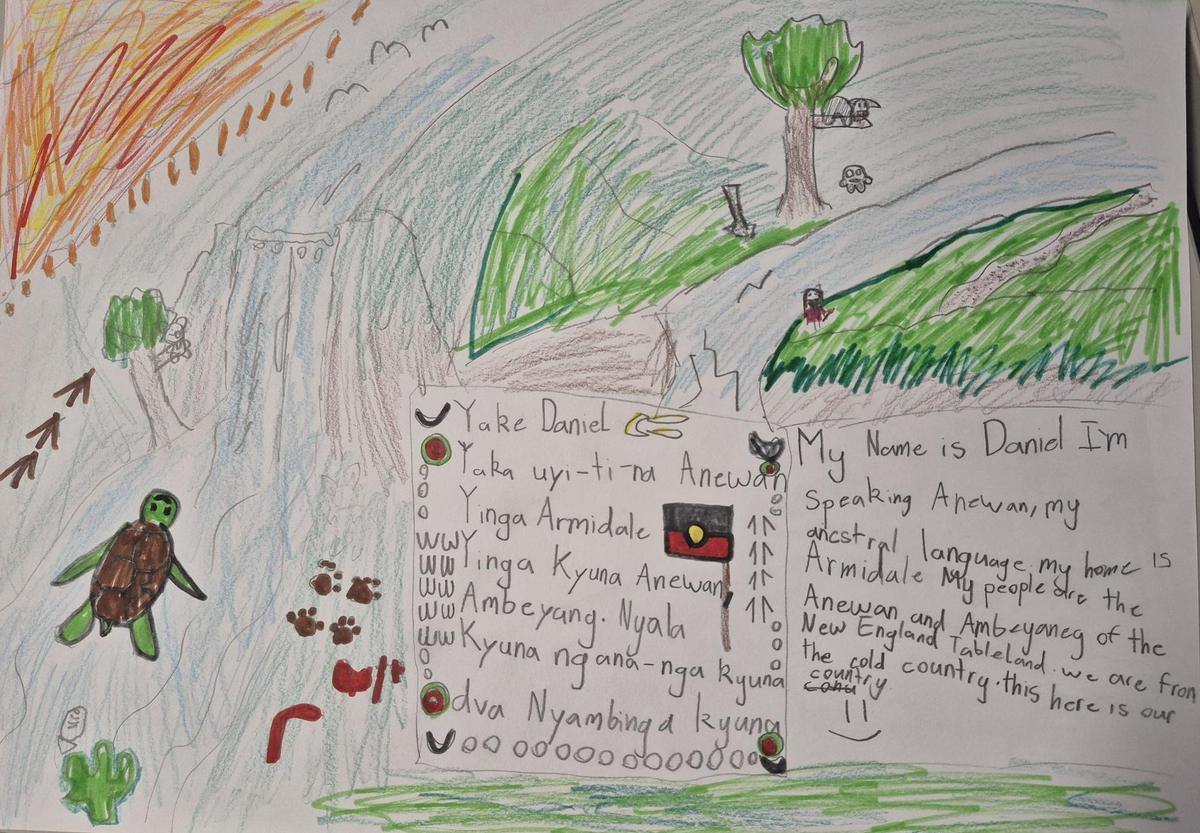 Yake Daniel
Yaka uyi-ti-na Anewan
Yinga Armidale
Yinga Kyuna Anewan
Ambeyang. Nyala
Kyuna ngana-nga kyuna
dva Nyambinga kyuna
My Name is Daniel I'm
Speaking Anewan, my
ancstral language. my home is
Armidale My people are the
Anewan and Ambeyaneg of the
New England Tableland. we are from
the cold country. this here is our
country